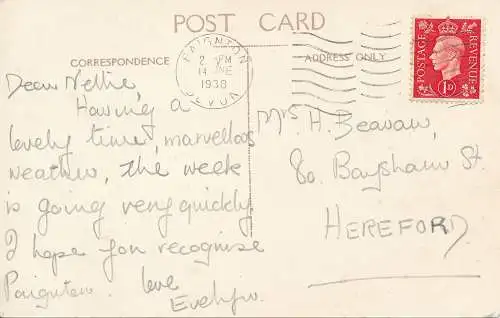 POST CARD
CORRESPONDENCE
ADDRESS ONLY
PAIGNTON
2 PM
14 JNE
1938
DEVON
POSTAGE
REVENUE
1D
Dear Nellie,
Having a
lovely time, marvellous
weather, the week
is going very quickly
I hope you recognise
Paignton. love
Evelyn.
Mrs H. Beavan,
80 Baysham St.
HEREFORD.